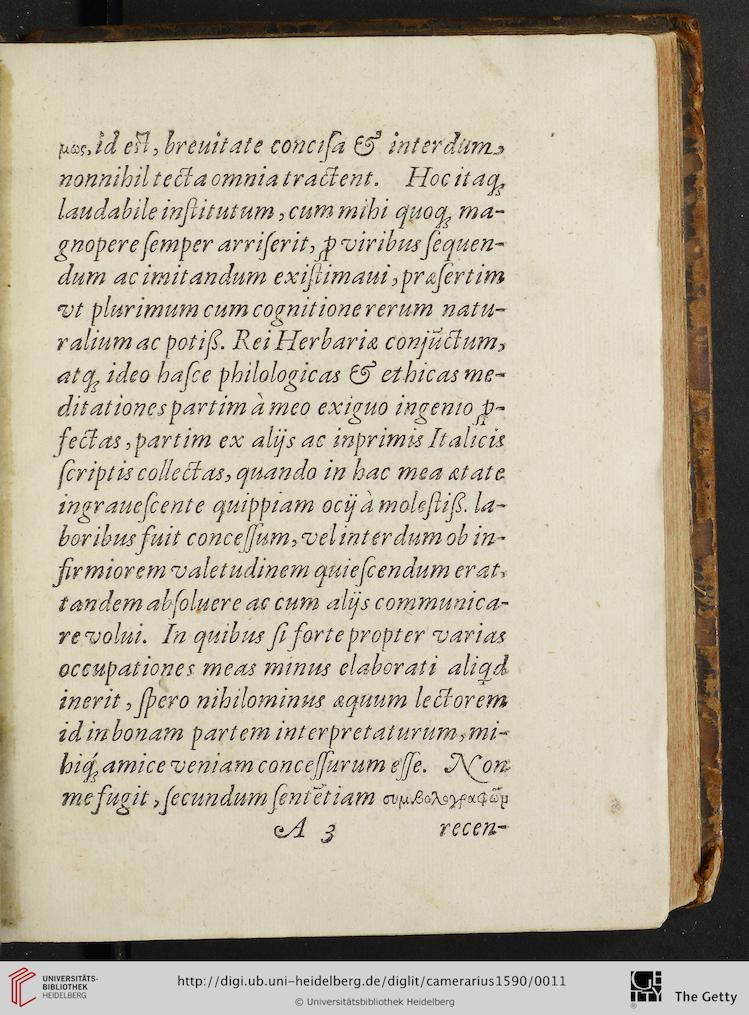 μως, id eſt, breuitate conciſa & interdum
nonnihil tecta omnia tractent. Hoc itaq;
laudabile inſtitutum, cum mihi quoq; ma-
gnopere ſemper arriſerit, ꝓ viribus ſequen-
dum ac imitandum exiſtimaui, præſertim
vt plurimum cum cognitione rerum natu-
ralium ac potiß. Rei Herbariæ conjūctum,
atq; ideo haſce philologicas & ethicas me-
ditationes partim à meo exiguo ingenio ꝓ-
fectas, partim ex alijs ac inprimis Italicis
ſcriptis collectas, quando in hac mea ætate
ingraueſcente quippiam ocij à moleſtiß. la-
boribus fuit conceſſum, vel interdum ob in-
firmiorem valetudinem quieſcendum erat,
tandem abſoluere ac cum alijs communica-
re volui. In quibus ſi forte propter varias
occupationes meas minus elaborati aliqd
inerit, ſpero nihilominus æquum lectorem
id in bonam partem interpretaturum, mi-
hiq́; amice veniam conceſſurum eſſe. Non
me fugit, ſecundum ſentētiam συμβολογράφωμ
A 3 recen-
UNIVERSITÄTS-
BIBLIOTHEK
HEIDELBERG
http://digi.ub.uni-heidelberg.de/diglit/camerarius1590/0011
© Universitätsbibliothek Heidelberg
The Getty